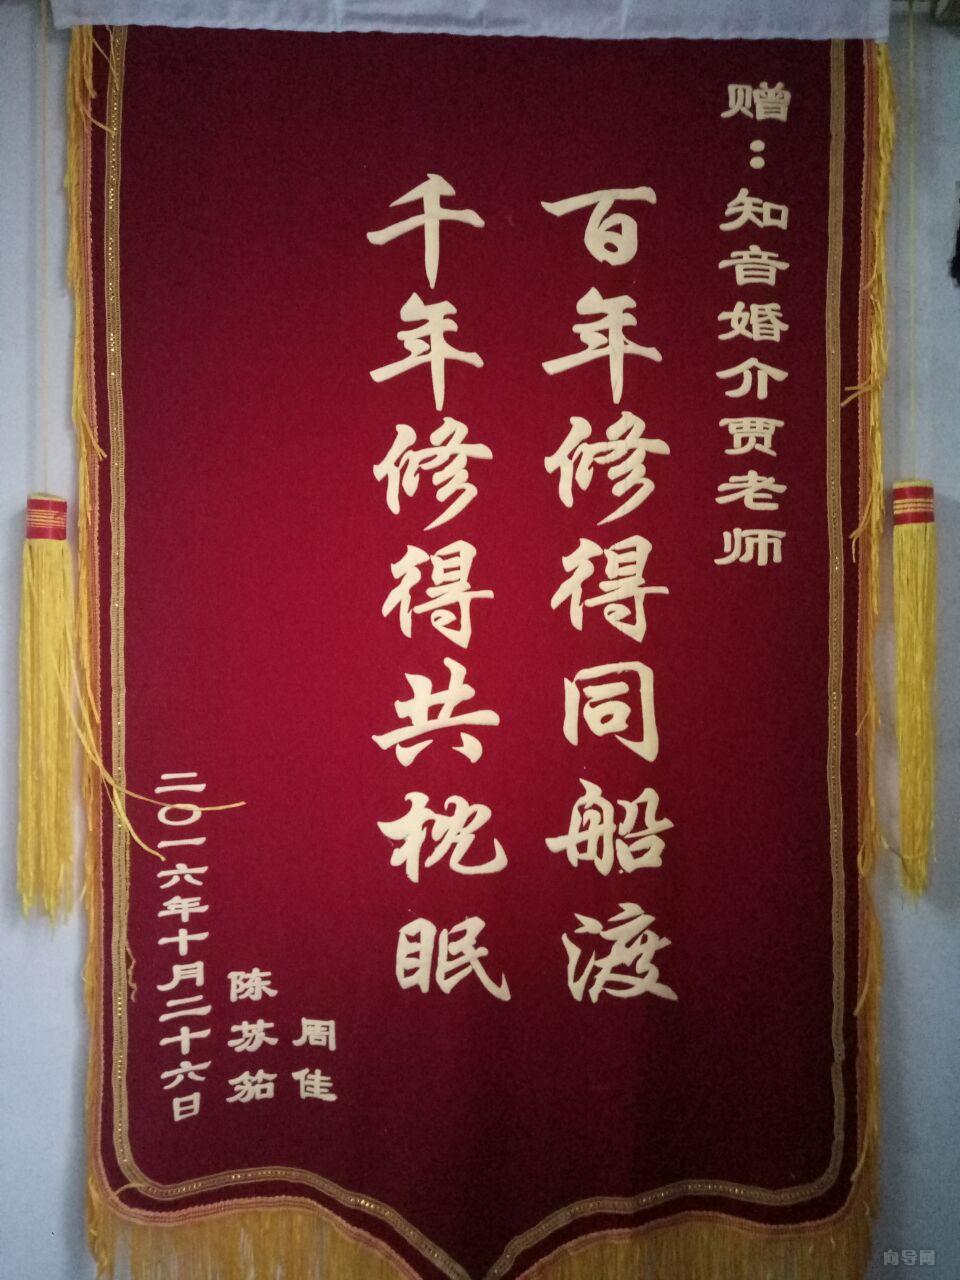 赠：知音婚介贾老师
百年修得同船渡
千年修得共枕眠
周佳
陈苏茹
二〇一六年十月二十六日
向导网